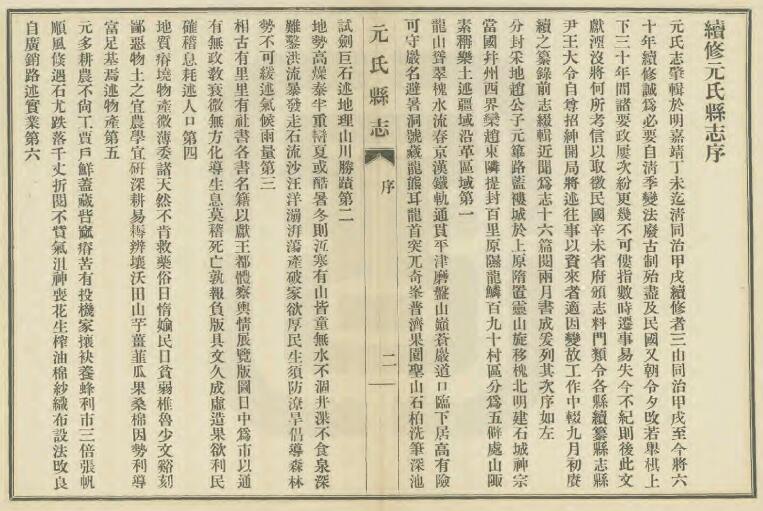 續修元氏縣志序
元氏志肇輯於明嘉靖丁未迄清同治甲戌續修者三由同治甲戌至今將六
十年續修誠為必要自清季變法廢古制殆盡及民國又朝令夕改若舉棋上
下三十年間諸要政屢次紛更幾不可僂指數時遷事易失今不紀則後此文
獻湮沒將何所考信以取徵民國辛未省府頒志料門類令各縣續纂縣志縣
尹王大令自尊招紳開局將述往事以資來者適因變故工作中輟九月初賡
續之纂錄前志綴輯近聞為志十六篇閱兩月書成爰列其次序如左
分封采地趙公子元篳路藍褸城於上原隋置靈山旋移槐北明建石城神宗
當國幷州西界欒趙東隣提封百里原隰龍鱗百九十村區分為五僻處山陬
素稱樂土述疆域沿革區域第一
龍山聳翠槐水流春京漢鐵軌通貫平津磨盤山嶺蒼巖道口臨下居高有險
可守嚴名避暑洞號藏龍熊耳龍首突兀奇峯普濟果園聖山石柏洗筆深池
元氏縣志
序
二
試劍巨石述地理山川勝蹟第二
地勢高燥泰半重巒夏或酷暑冬則沍寒有山皆童無水不涸井渫不食泉深
難鑿洪流暴發走石流沙汪洋漰湃蕩產破家欲厚民生須防潦旱倡導森林
勢不可緩述氣候雨量第三
相古有里里有社書各書名籍以獻王都體察輿情展覽版圖日中為市以通
有無政敎衰微無方化導生息莫稽死亡孰報負版具文久成虛造果欲利民
確稽息耗述人口第四
地質瘠墝物產微薄委諸天然不肯救藥俗日惰媮民日貧弱椎魯少文谿刻
鄙惡物土之宜農學宜研深耕易耨辨壤沃田山芋薑韮瓜果桑棉因勢利導
富足基焉述物產第五
元多耕農不尙工賈戶鮮蓋藏呰窳瘠苦有投機家攘袂養蜂利市三倍張帆
順風倏遇石尤跌落千丈折閱不貲氣沮神喪花生榨油棉紗織布設法改良
自廣銷路述實業第六